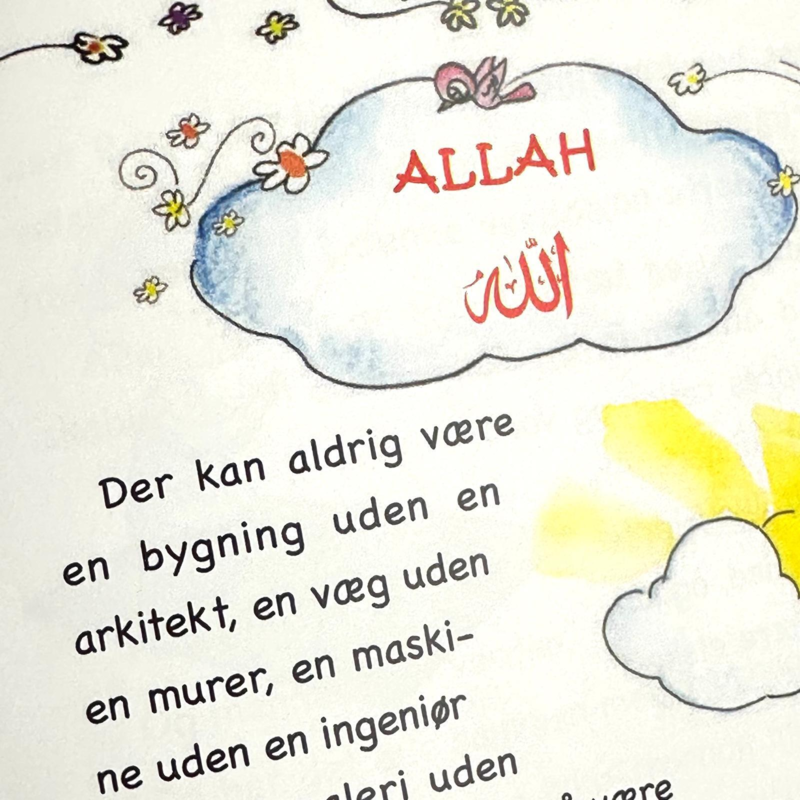 ALLAH
الله
Der kan aldrig være
en bygning uden en
arkitekt, en væg uden
en murer, en maski-
ne uden en ingeniør
uden
være